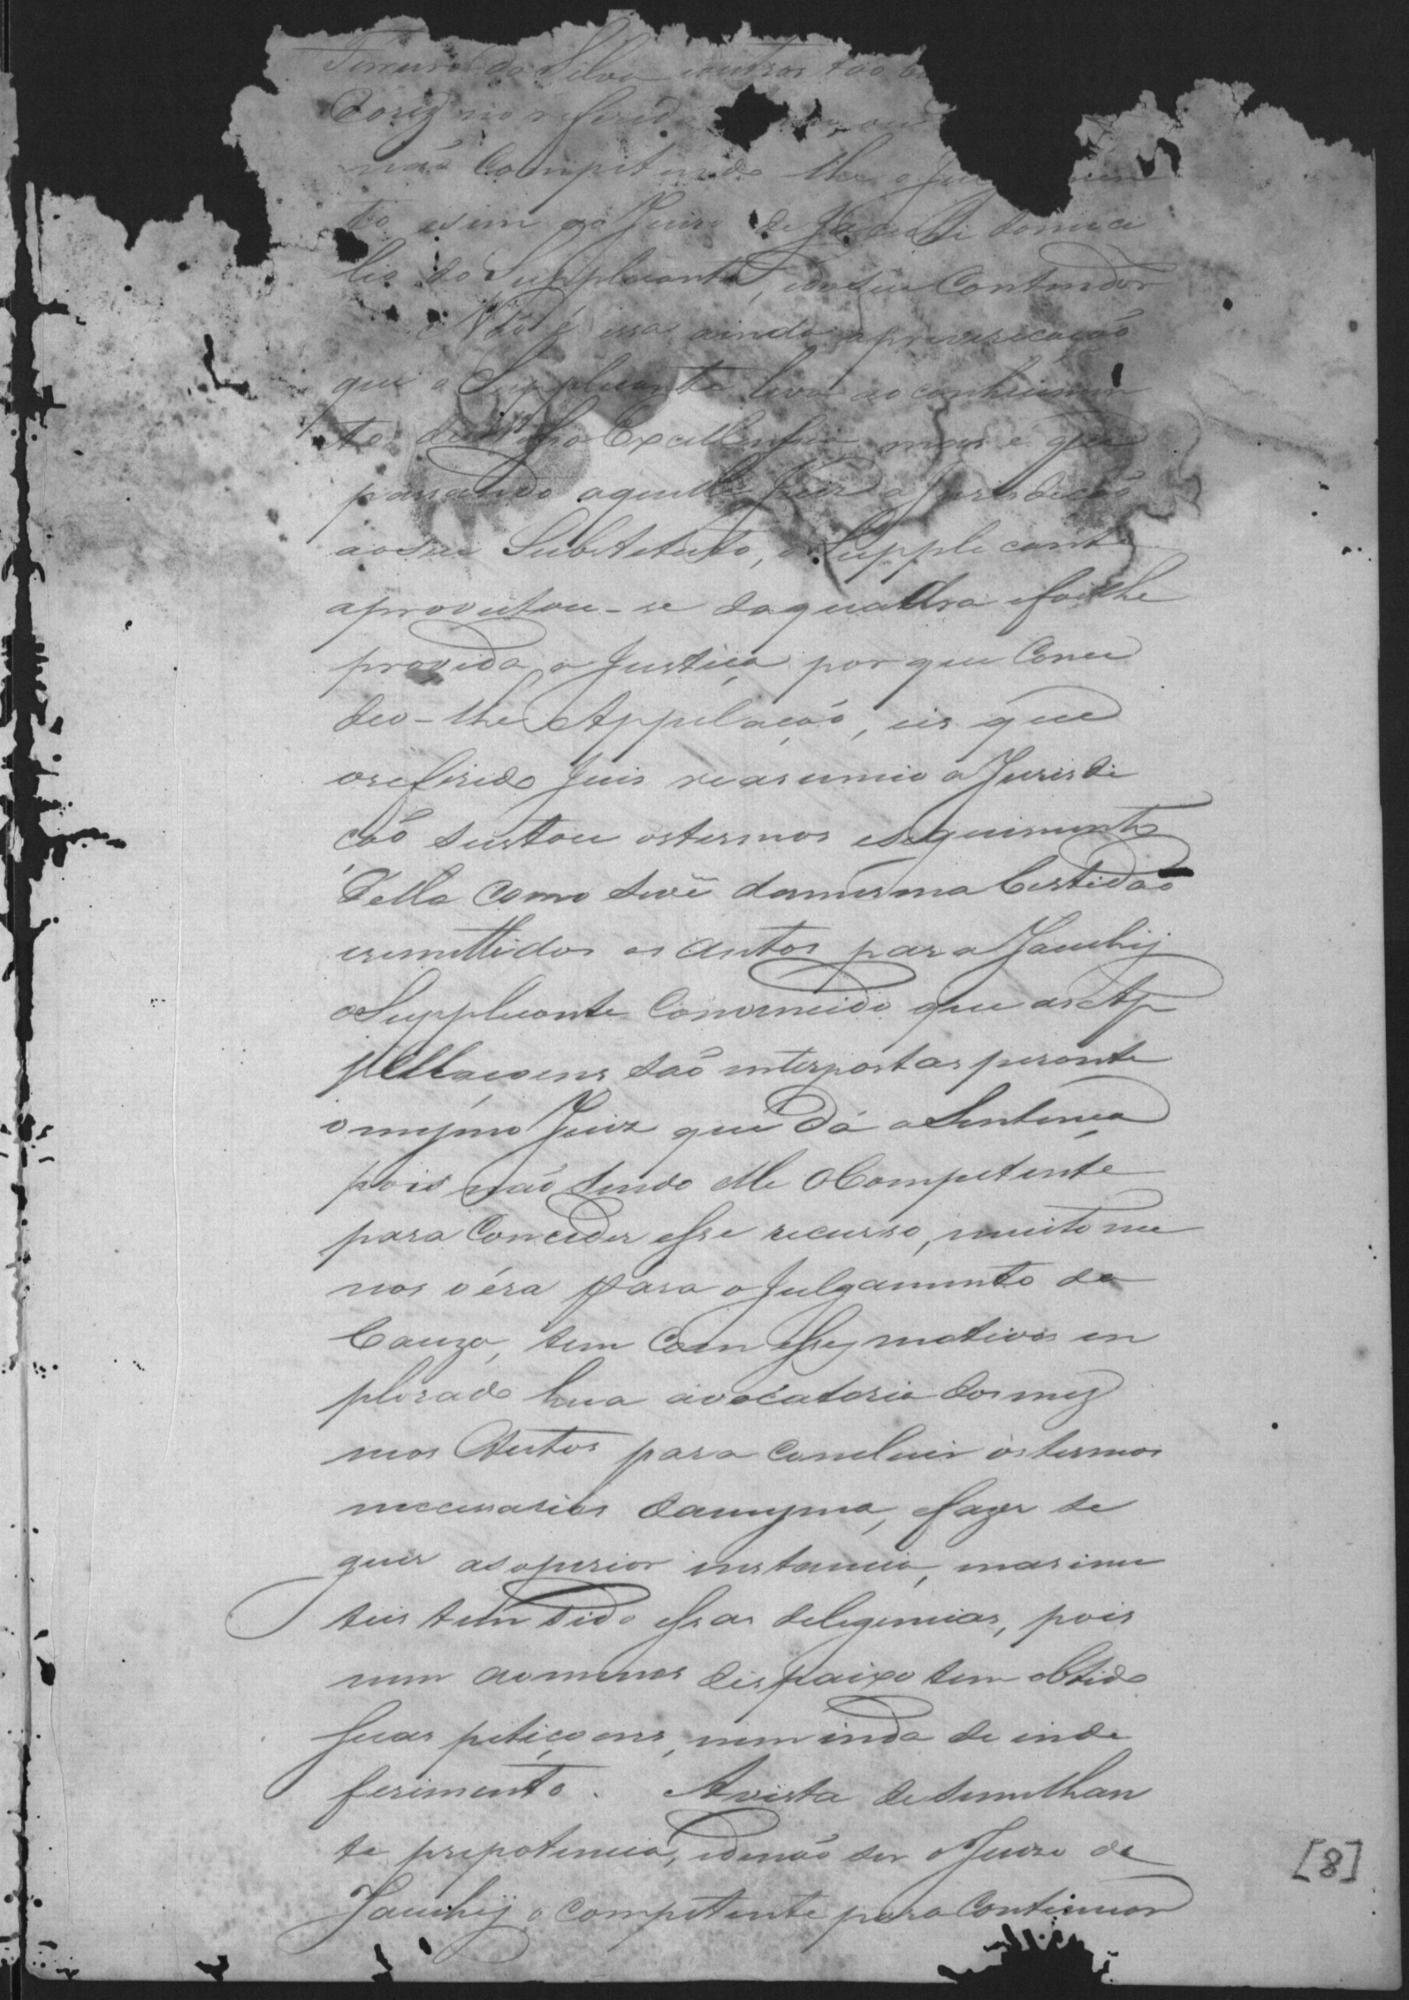 da Silva
não Competindo lhe o
to e sim ao Juiso de domici
lio do Supplicante, e do seu Contendor
Não é issa ainda a prevaricação
que o Supplicante leva ao conhecimen
to Excellencia, mas é que
passando aquelle Juiz a Jurisdição
ao seu Substetuto, o Supplicante
aproveitou-se daquadra e foi lhe
provida a Justiça por que Conce
deo-lhe Appelação, eis que
o referido Juis reasumio a Jurisdi
ção sustou os termos e seguimento
Della como se vê da mesma Certidão
e remettidos os autos para Jacuhij
o Supplicante Convencido que as Ap
pellaçoens são interpostas perante
o mesmo Juiz que dá a Sentença
pois não sendo elle o Competente
para Conceder esse recurso, muito me
nos o éra para o Julgamento da
Cauza, tem Com esses motivos en
plorado hua avocatoria dos mes
mos Autos para Concluir os termos
neccessarios da mesma, e fazer se
guir a superior instancia, mas inu
teis tem sido essas deligencias, pois
nem ao menos dispaixo tem obtido
suas petiçoens, nem inda de inde
ferimento. A vista de semilhan
te prepotencia, e de não ser o Juizo de
Jacuhij o competente para Continuar
[8]